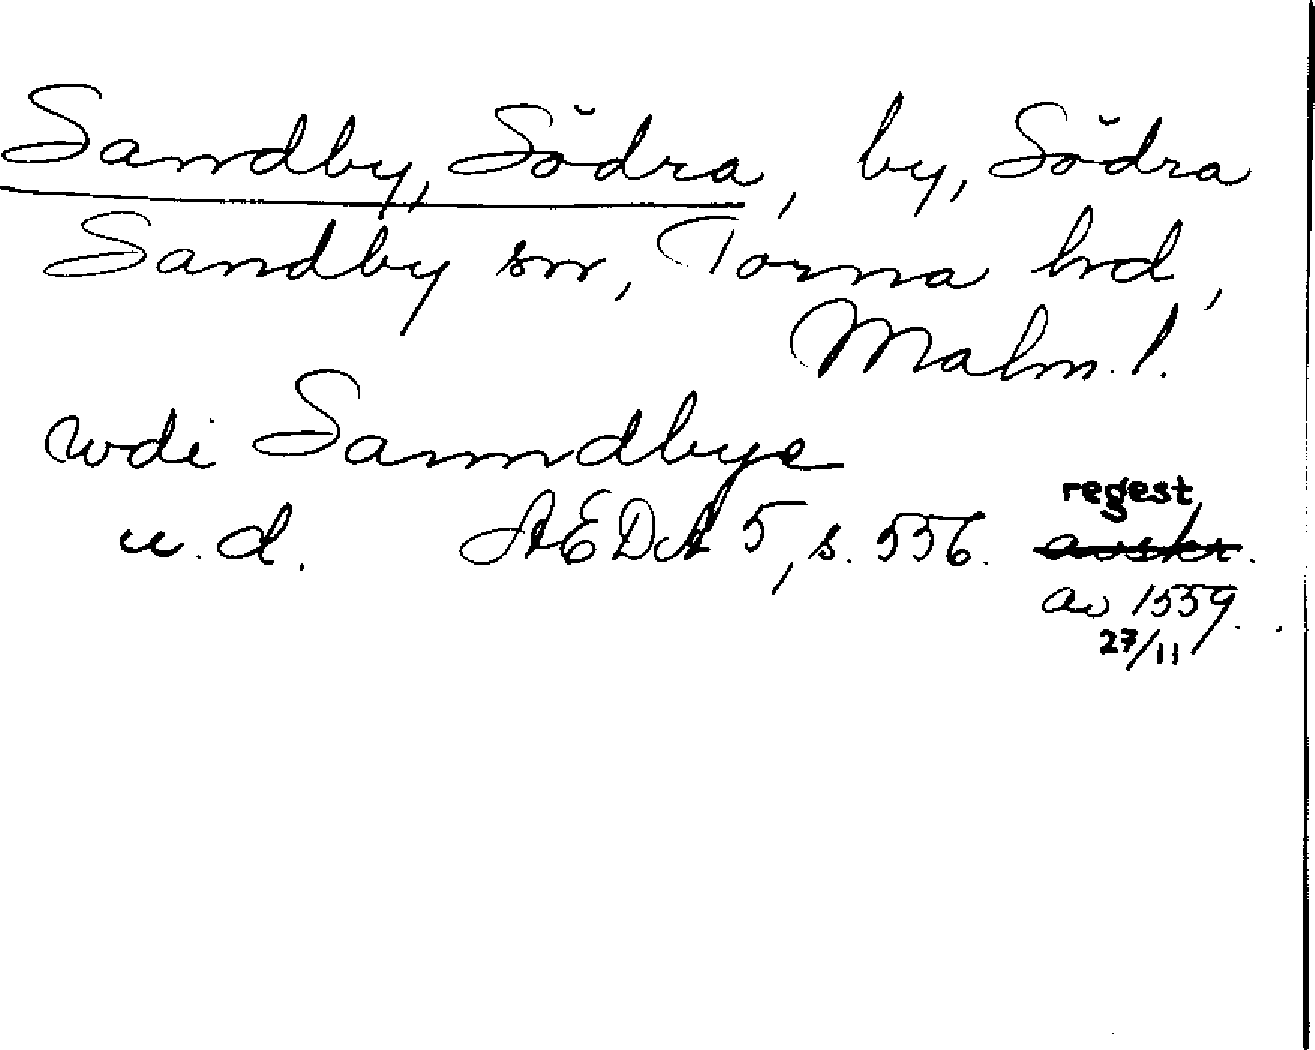 Sandby, Södra, by, Södra
Sandby sn, Torna hd,
Malm. l.
wdi Sanndbye
u. d. ÆDA 5, s. 556. regest
avskr.
av 1559.
27/11